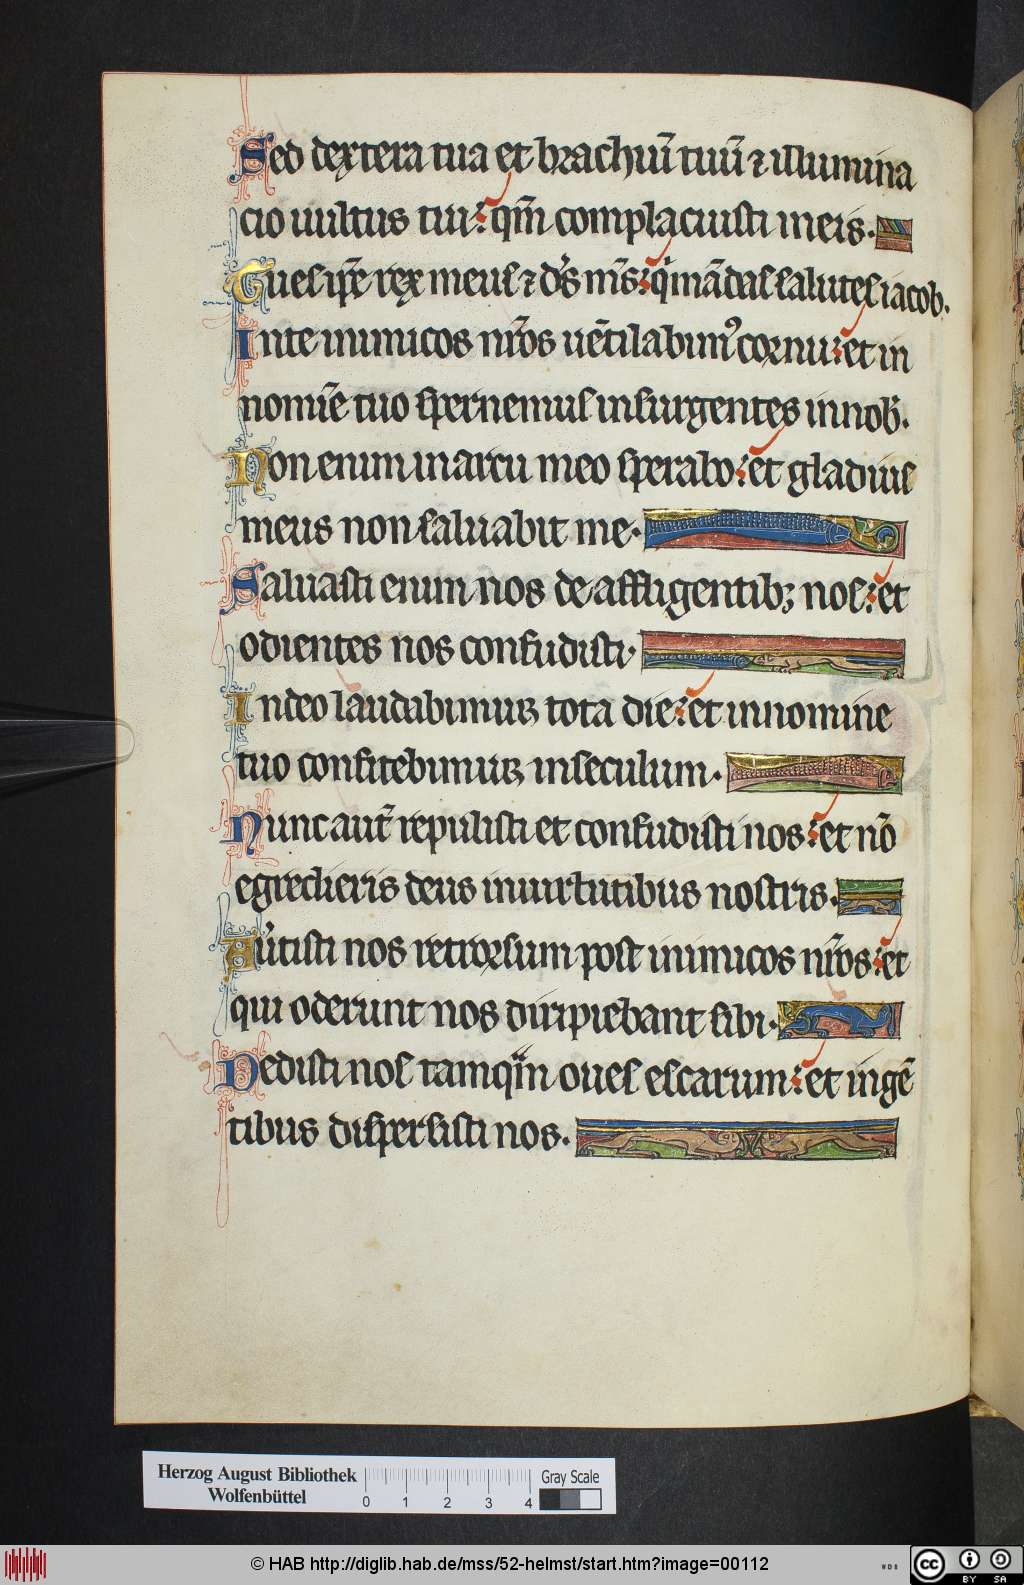 Sed dextera tua et brachiũ tuũ ⁊ illumina
cio uultus tui: qm̃ complacuisti in eis.
Tu es ip̃e rex meus ⁊ ds̃ m̃s: q̇ mãdas salutes iacob.
In te inimicos nr̃os uẽtilabim᾽ cornu: et in
nomĩe tuo spernemus insurgentes in nob̃.
Non enim in arcu meo sperabo: et gladius
meus non saluabit me.
Saluasti enim nos de affligentibꝫ nos: et
odientes nos confudisti.
In deo laudabimur tota die: et in nomine
tuo confitebimur in seculum.
Nunc aut̃ repulisti et confudisti nos: et nõ
egredieris deus in uirtutibus nostris.
Au̾tisti nos retrorsum post inimicos nr̃os: et
qui oderunt nos diripiebant sibi.
Dedisti nos tamq̃m oues escarum: et in gẽ
tibus dispersisti nos.
Herzog August Bibliothek
Wolfenbüttel
0 1 2 3 4
Gray Scale
© HAB http://diglib.hab.de/mss/52-helmst/start.htm?image=00112
WDB
cc BY SA